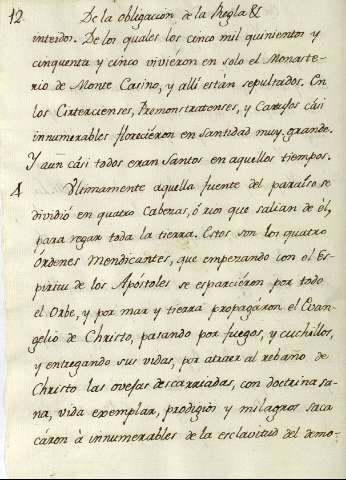 12 De la obligacion de la Regla &
interior. De los quales los cinco mil quinientos y
cinquenta y cinco vivieron en solo el Monaste-
rio de Monte Casino, y allí están sepultados. En
los Cistercienses, Premonstratenses, y Cartusos cási
innumerables floreciéron en santidad muy grande.
Y aun cási todos eran Santos en aquellos tiempos.
4 Ultimamente aquella fuente del paraíso se
dividió en quatro Cabezas, ó rios que salian de él,
para regar toda la tierra. Estos son los quatro
Órdenes Mendicantes, que empezando con el Es-
píritu de los Apóstoles se esparciéron por todo
el Orbe, y por mar y tierra propagáron el Evan-
gelio de Christo, pasando por fuegos, y cuchillos,
y entregando sus vidas, por atraer al rebaño de
Christo las ovejas descarriadas, con doctrina sa-
na, vida exemplar, prodigios y milagros saca
cáron à innumerables de la esclavitud del demo-